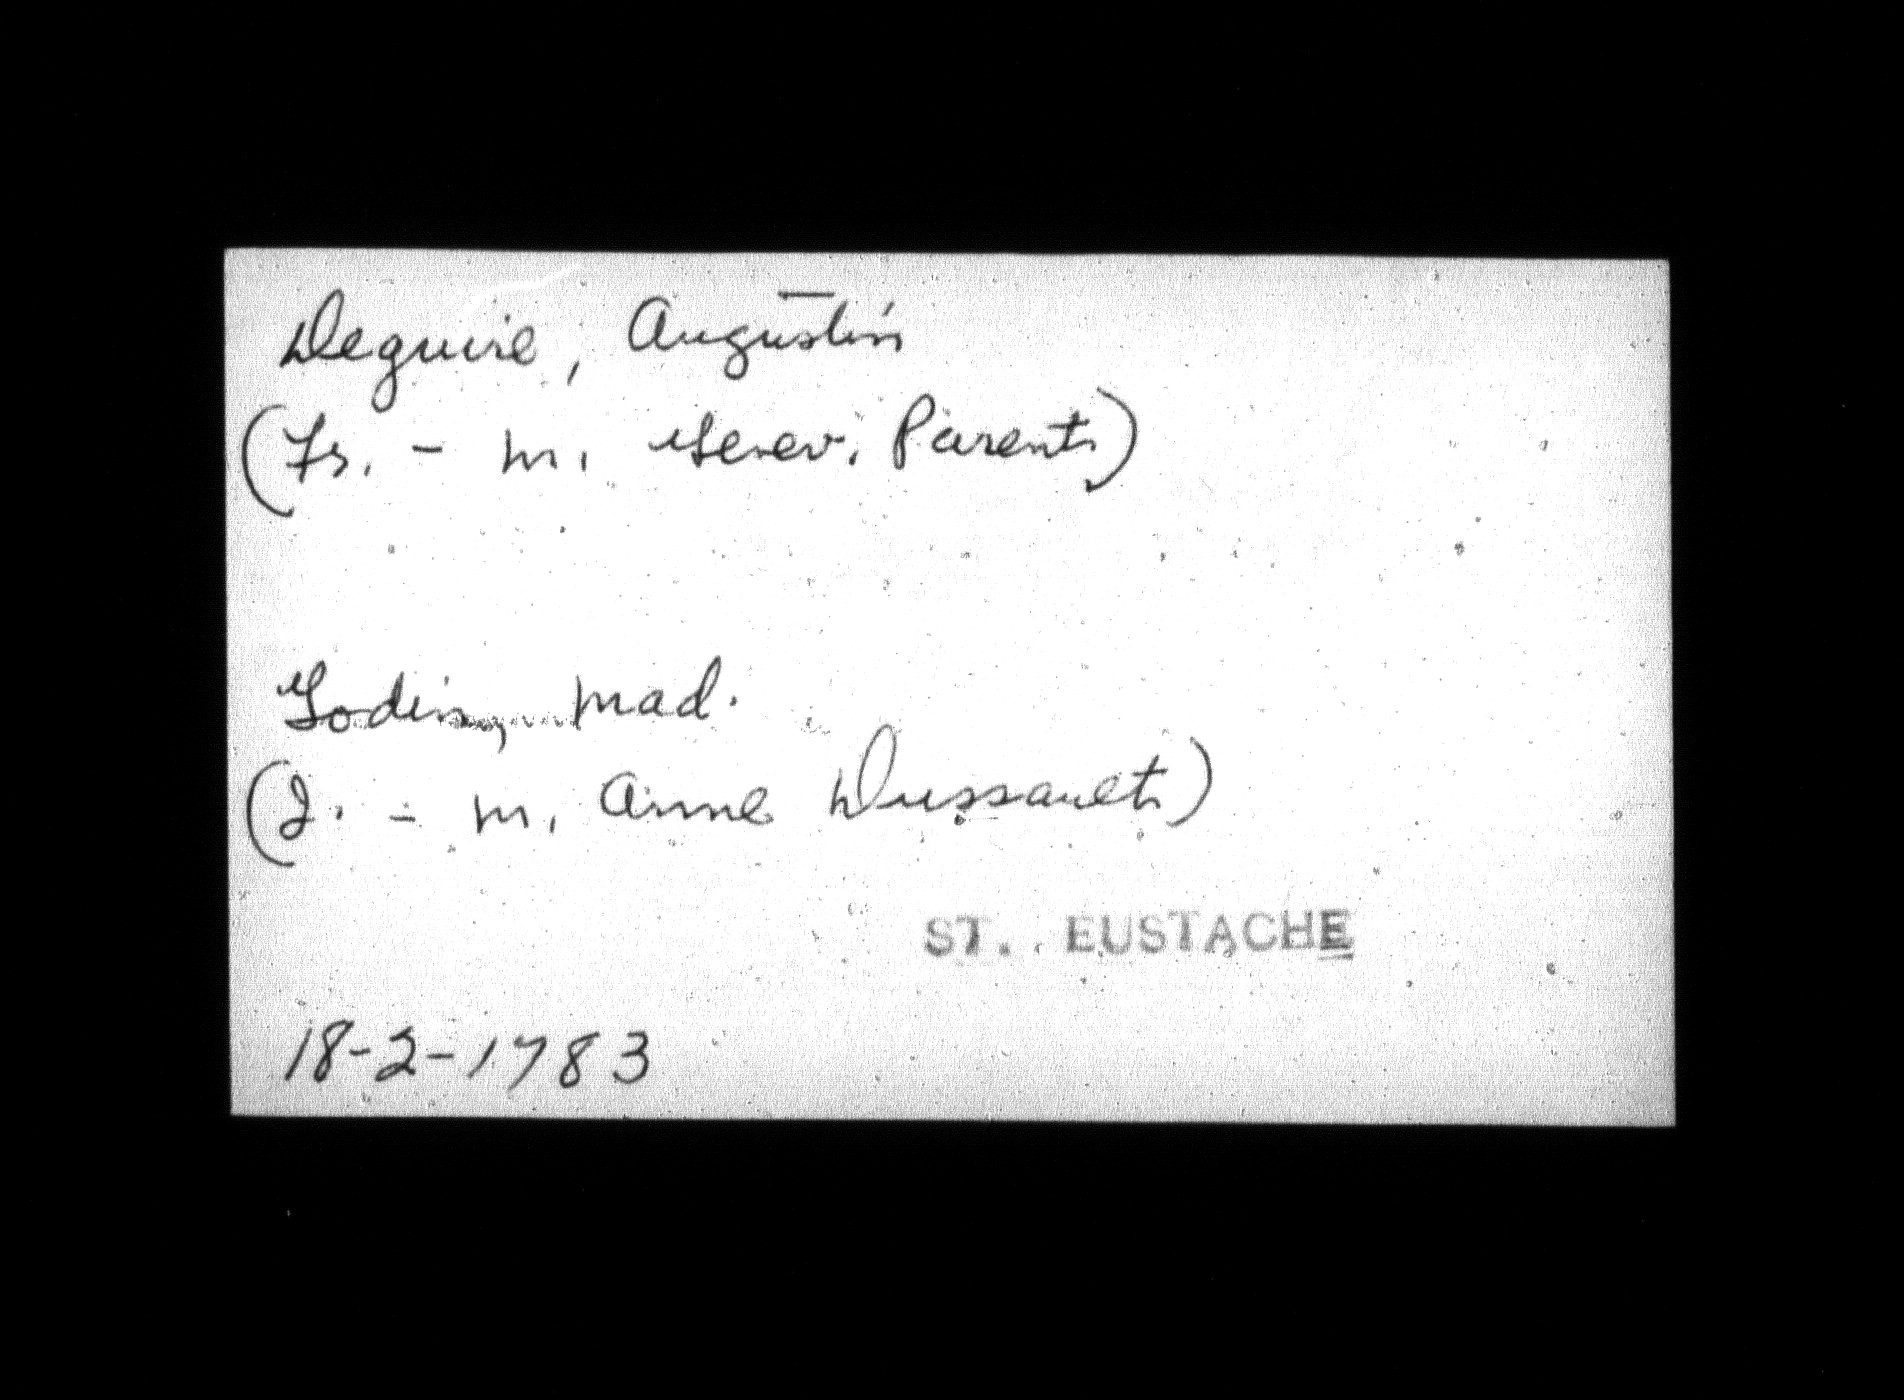 Deguire, Augustin
(Frs. - m. Genev. Parent)
Godin, Mad.
(J. - m. Anne Dussault)
ST. EUSTACHE
18-2-1783